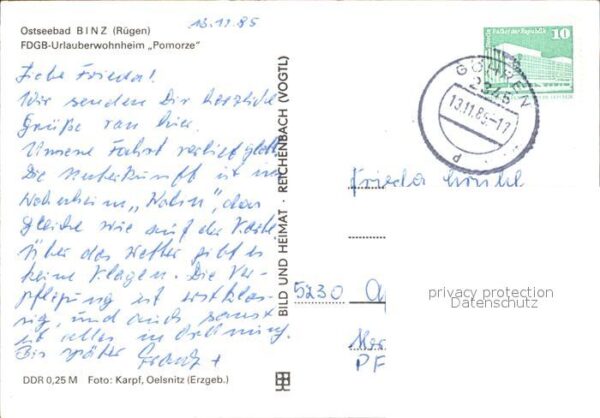 13.11.85
Ostseebad BINZ (Rügen)
FDGB-Urlauberwohnheim „Pomorze“
Liebe Frieda!
Wir senden Dir herzliche
Grüße von hier.
Unsere Fahrt verlief glatt.
Die Unterkunft ist im
Wohnheim
gleiche wie auf der Karte
Über das Wetter gibt es
keine Klagen. Die Ver-
pflegung ist erstklas-
sig, und auch sonst
ist alles in Ordnung.
Bis später
DDR 0,25 M Foto: Karpf, Oelsnitz (Erzgeb.)
BILD UND HEIMAT · REICHENBACH (VOGTL)
10
Palast der Republik
GÖHREN
2345
13.11.85-17
d
Frieda
5230
PF
privacy protection
Datenschutz